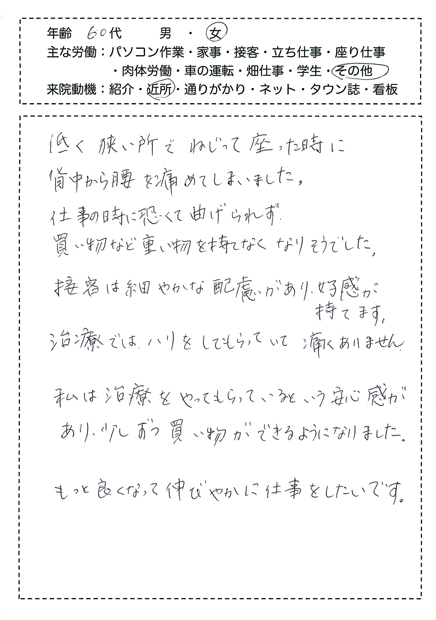 年齢 60代 男 ・ 女
主な労働：パソコン作業・家事・接客・立ち仕事・座り仕事
・肉体労働・車の運転・畑仕事・学生・その他
来院動機：紹介・近所・通りがかり・ネット・タウン誌・看板
低く狭い所で ねじって座った時に
背中から腰を痛めてしまいました。
仕事の時に恐くて曲げられず、
買い物など重い物を持てなくなりそうでした。
接客は細やかな配慮があり、好感が
持てます。
治療では、ハリをしてもらっていて 痛くありません。
私は治療をやってもらっているという安心感が
あり、少しずつ買い物ができるようになりました。
もっと良くなって伸びやかに仕事をしたいです。